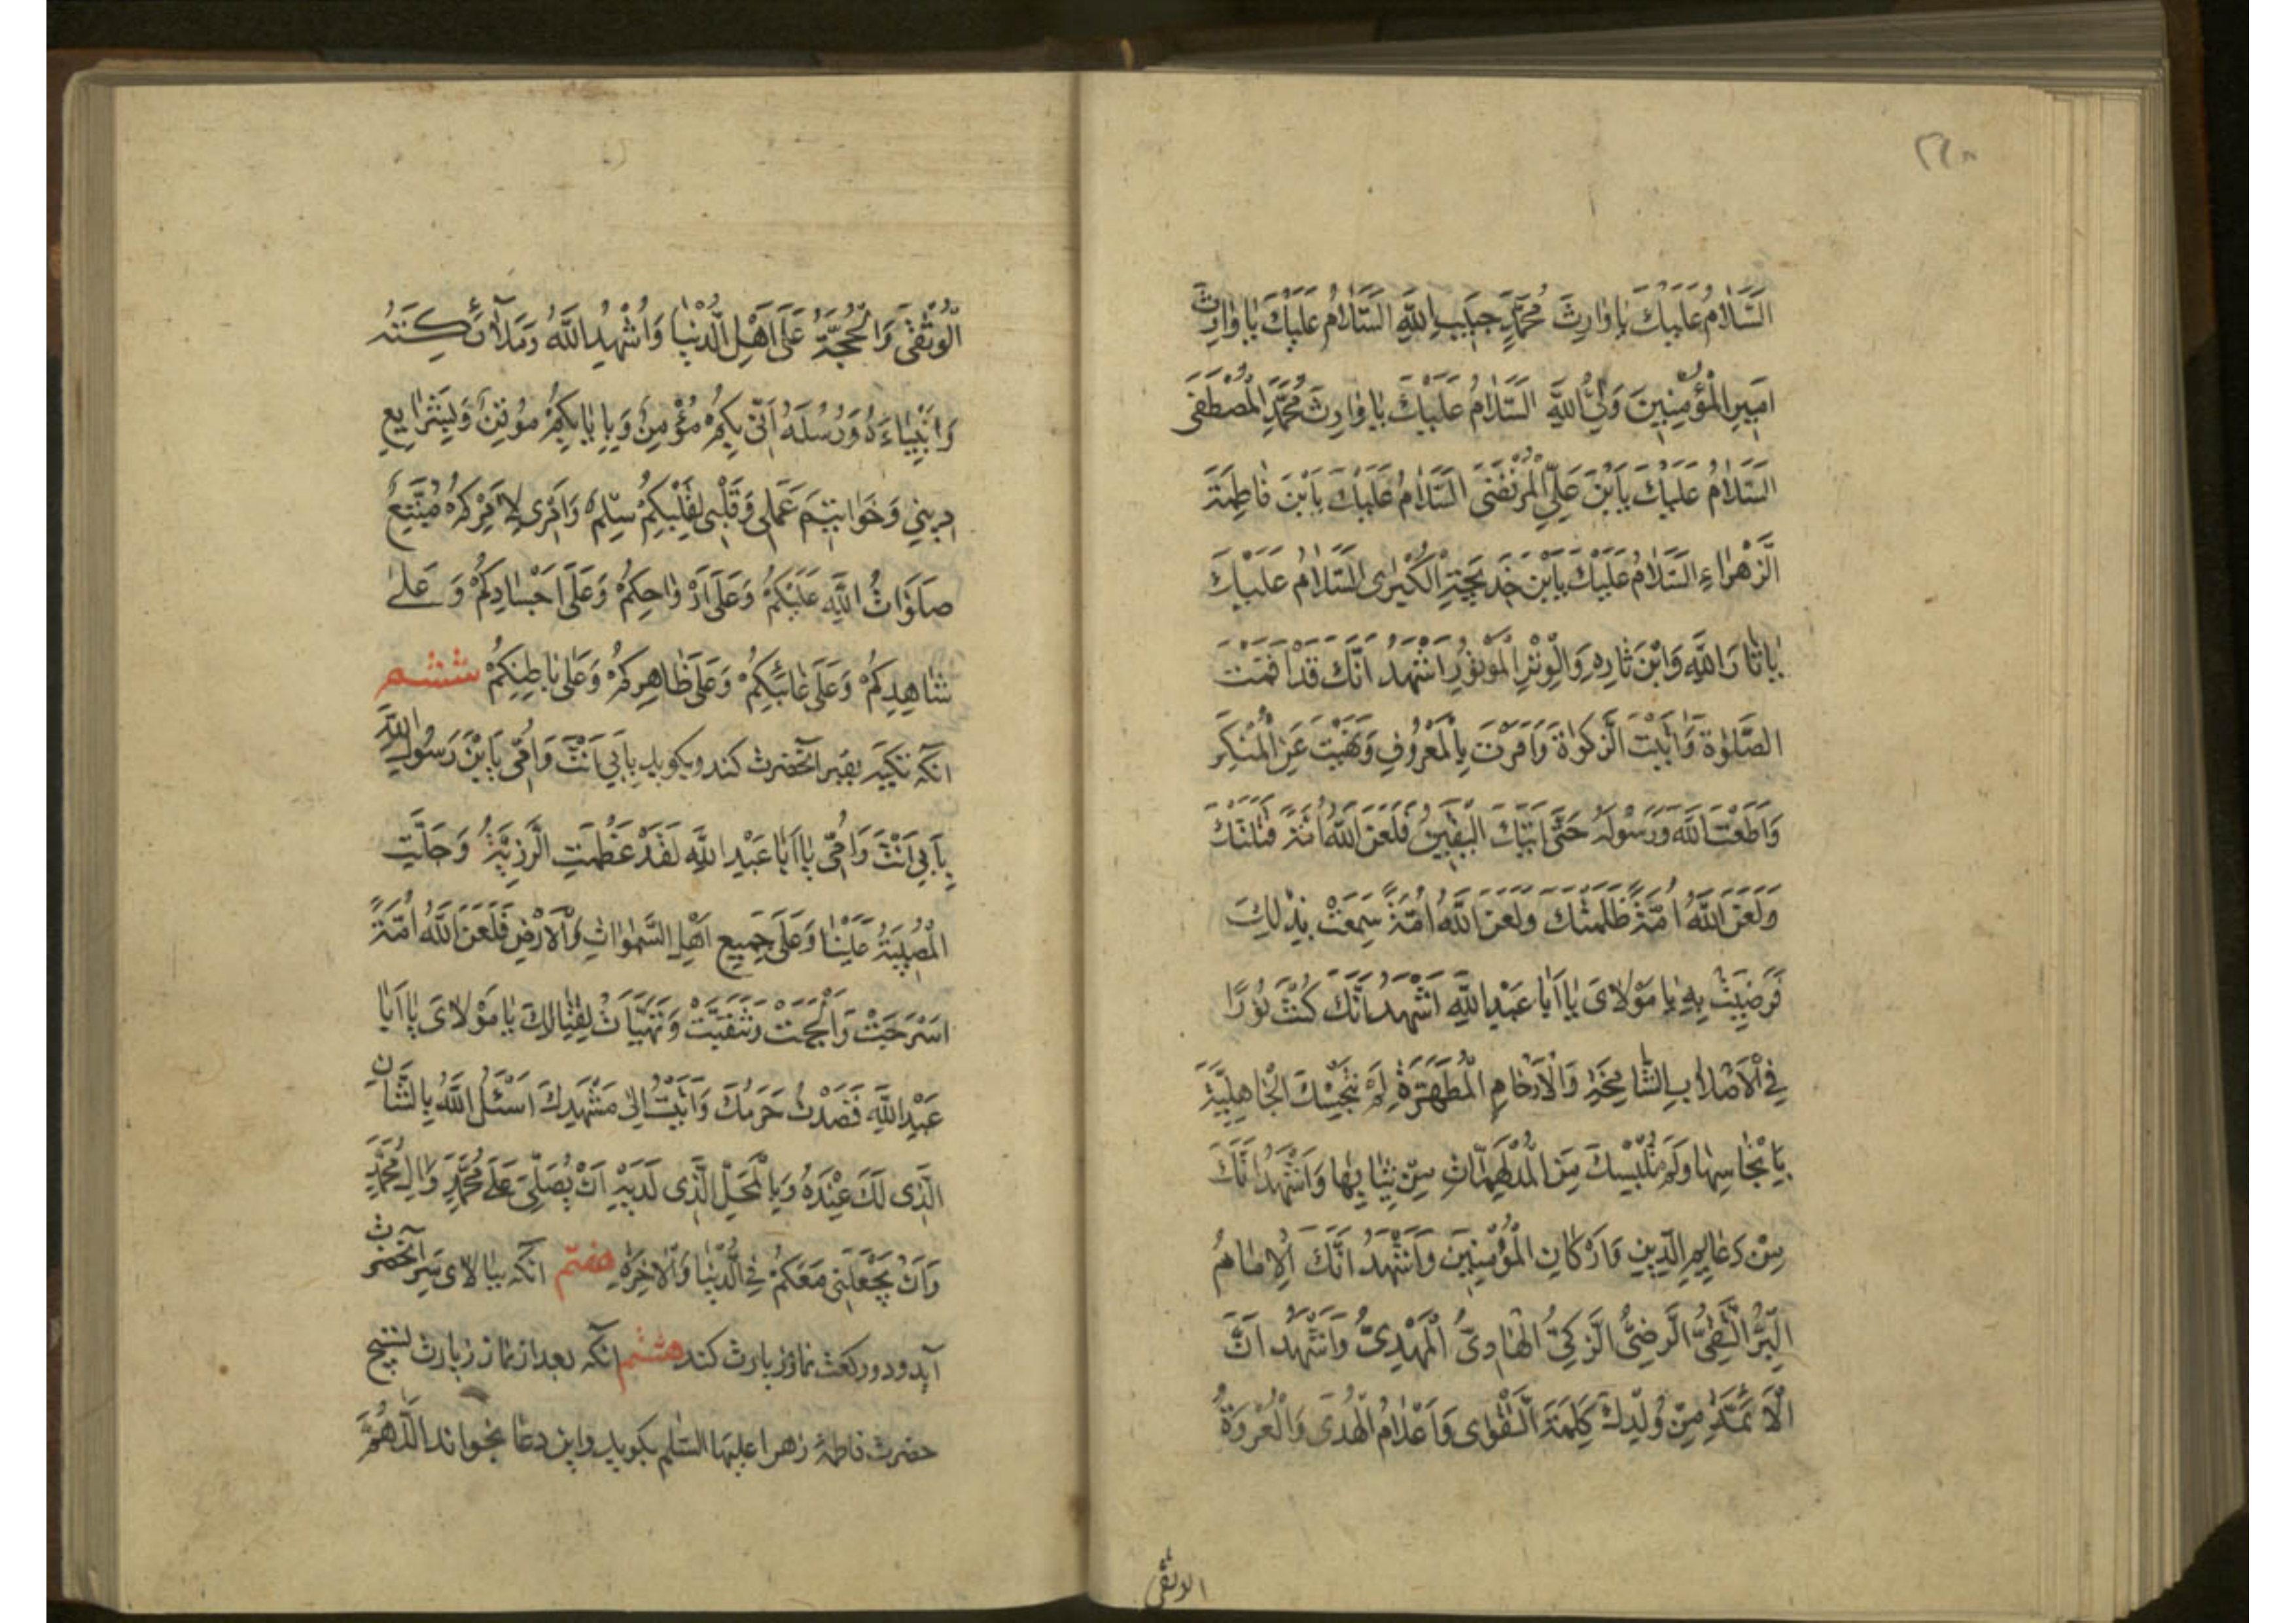 ٢٣٨
اَلسَّلٰامُ عَلَيْكَ يٰا وٰارِثَ مُحَمَّدٍ حَبٖيبِ اللّٰهِ اَلسَّلٰامُ عَلَيْكَ يٰا وٰارِثَ
اَمٖيرِ الْمُؤْمِنٖينَ وَلِيِّ اللّٰهِ اَلسَّلٰامُ عَلَيْكَ يٰا وٰارِثَ مُحَمَّدٍ الْمُصْطَفَى
اَلسَّلٰامُ عَلَيْكَ يَابْنَ عَلِيٍّ الْمُرْتَضَى اَلسَّلٰامُ عَلَيْكَ يَابْنَ فٰاطِمَةَ
الزَّهْرٰاءِ اَلسَّلٰامُ عَلَيْكَ يَابْنَ خَدٖيجَةَ الْكُبْرٰى اَلسَّلٰامُ عَلَيْكَ
يٰا ثٰارَ اللّٰهِ وَابْنَ ثٰارِهٖ وَالْوِتْرَ الْمَوْتُورَ اَشْهَدُ اَنَّكَ قَدْ اَقَمْتَ
الصَّلٰوةَ وَاٰتَيْتَ الزَّكٰوةَ وَاَمَرْتَ بِالْمَعْرُوفِ وَنَهَيْتَ عَنِ الْمُنْكَرِ
وَاَطَعْتَ اللّٰهَ وَرَسُولَهُ حَتّٰى اَتٰيكَ الْيَقٖينُ فَلَعَنَ اللّٰهُ اُمَّةً قَتَلَتْكَ
وَلَعَنَ اللّٰهُ اُمَّةً ظَلَمَتْكَ وَلَعَنَ اللّٰهُ اُمَّةً سَمِعَتْ بِذٰلِكَ
فَرَضِيَتْ بِهٖ يٰا مَوْلٰاىَ يٰا اَبٰا عَبْدِ اللّٰهِ اَشْهَدُ اَنَّكَ كُنْتَ نُورًا
فِى الْاَصْلٰابِ الشّٰامِخَةِ وَالْاَرْحٰامِ الْمُطَهَّرَةِ لَمْ تُنَجِّسْكَ الْجٰاهِلِيَّةُ
بِاَنْجٰاسِهٰا وَلَمْ تُلْبِسْكَ مِنَ الْمُدْلَهِمّٰاتِ مِنْ ثِيٰابِهٰا وَاَشْهَدُ اَنَّكَ
مِنْ دَعٰايِمِ الدّٖينِ وَاَرْكٰانِ الْمُؤْمِنٖينَ وَاَشْهَدُ اَنَّكَ الْاِمٰامُ
الْبَرُّ التَّقِىُّ الرَّضِىُّ الزَّكِىُّ الْهٰادِىُّ الْمَهْدِىُّ وَاَشْهَدُ اَنَّ
الْاَئِمَّةَ مِنْ وُلْدِكَ كَلِمَةُ التَّقْوٰى وَاَعْلٰامُ الْهُدٰى وَالْعُرْوَةُ
الوثقى
الْوُثْقٰى وَالْحُجَّةُ عَلٰى اَهْلِ الدُّنْيٰا وَاُشْهِدُ اللّٰهَ وَمَلٰآئِكَتَهُ
وَاَنْبِيٰاءَهُ وَرُسُلَهُ اَنّٖى بِكُمْ مُؤْمِنٌ وَبِاِيٰابِكُمْ مُوقِنٌ وَبِشَرٰايِعِ
دٖينٖى وَخَوٰاتٖيمِ عَمَلٖى وَقَلْبٖى لِقَلْبِكُمْ سِلْمٌ وَاَمْرٖى لِاَمْرِكُمْ مُتَّبِعٌ
صَلَوٰاتُ اللّٰهِ عَلَيْكُمْ وَعَلٰى اَرْوٰاحِكُمْ وَعَلٰى اَجْسٰادِكُمْ وَعَلٰى
شٰاهِدِكُمْ وَعَلٰى غٰائِبِكُمْ وَعَلٰى ظٰاهِرِكُمْ وَعَلٰى بٰاطِنِكُمْ ششم
انكه تكيه بقبر آنحضرت كند و بگويد بِاَبٖى اَنْتَ وَاُمّٖى يَابْنَ رَسُولِ اللّٰهِ
بِاَبٖى اَنْتَ وَاُمّٖى يٰا اَبٰا عَبْدِ اللّٰهِ لَقَدْ عَظُمَتِ الرَّزِيَّةُ وَجَلَّتِ
الْمُصٖيبَةُ عَلَيْنٰا وَعَلٰى جَمٖيعِ اَهْلِ السَّمٰوٰاتِ وَالْاَرْضِ فَلَعَنَ اللّٰهُ اُمَّةً
اَسْرَجَتْ وَاَلْجَمَتْ وَتَنَقَّبَتْ وَتَهَيَّأَتْ لِقِتٰالِكَ يٰا مَوْلٰاىَ يٰا اَبٰا
عَبْدِ اللّٰهِ قَصَدْتُ حَرَمَكَ وَاَتَيْتُ اِلٰى مَشْهَدِكَ اَسْئَلُ اللّٰهَ بِالشَّأْنِ
الَّذٖى لَكَ عِنْدَهُ وَبِالْمَحَلِّ الَّذٖى لَدَيْهِ اَنْ يُصَلِّىَ عَلٰى مُحَمَّدٍ وَاٰلِ مُحَمَّدٍ
وَاَنْ يَجْعَلَنٖى مَعَكُمْ فِى الدُّنْيٰا وَالْاٰخِرَةِ هفتم انكه ببالاى سر آنحضرت
آيد و دو ركعت نماز زيارت كند هشتم انكه بعد از نماز زيارت تسبيح
حضرت فاطمة زهرا عليها السّلم بگويد و اين دعا بخواند اَللّٰهُمَّ